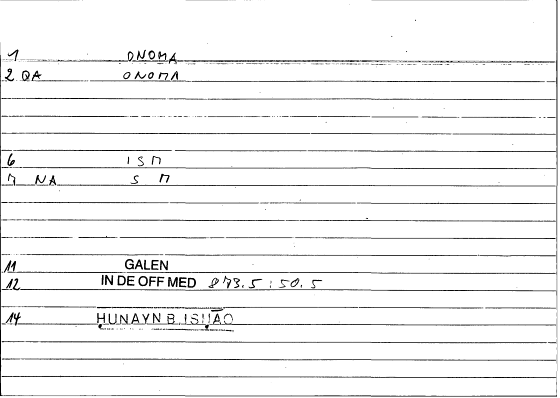 1 ONOMA
2 QA ONOMA
6 ISM
7 NA S M
11 GALEN
12 IN DE OFF MED 873.5 : 50.5
14 ḤUNAYN B. ISḤĀQ